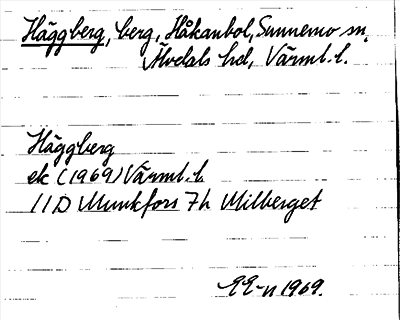 Häggberg, berg, Håkanbol, Sunnemo sn.
Älvdals hd, Värml. l.
Häggberg
ek (1969) Värml. l.
11D Munkfors 7h Milberget
1969.